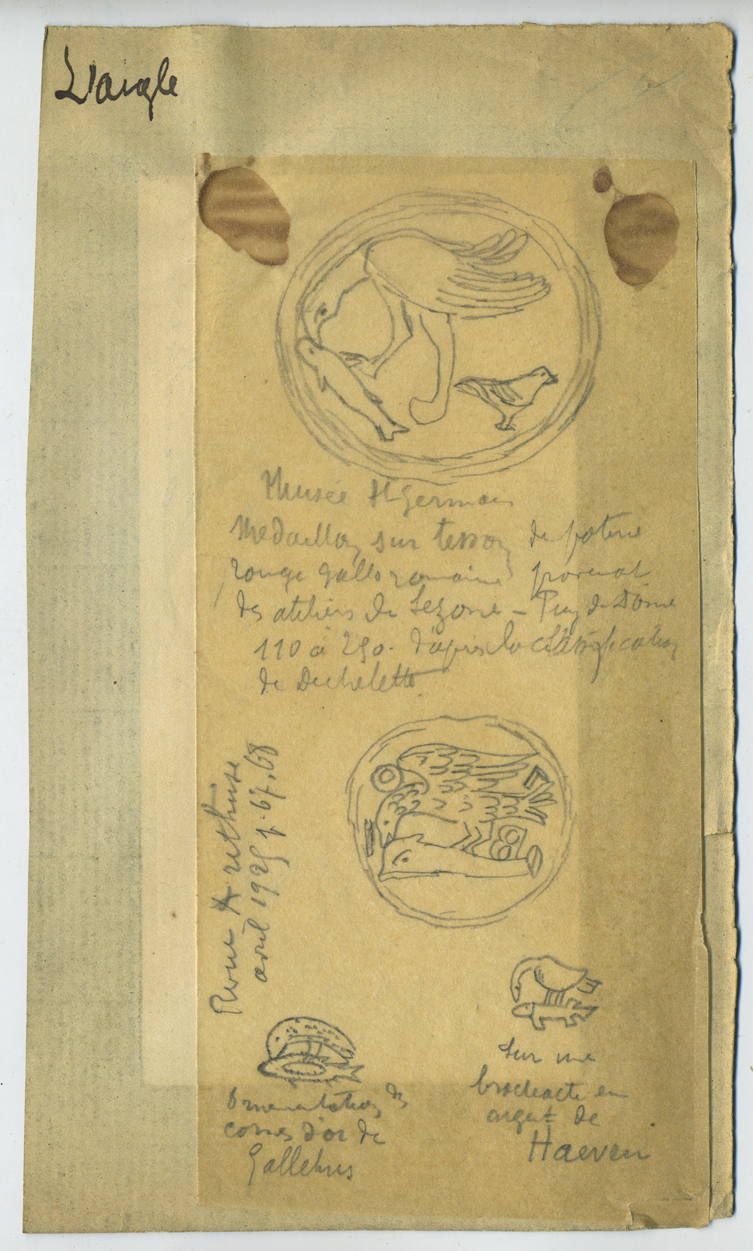 L'aigle
Musée St Germain
Medaillon sur tesson de poterie
rouge gallo romaine provenat
des ateliers de Lezoux - Puy de Dôme
110 à 290. d'après la classification
de Dechelette
Revue Arethuse
avril 1925 p. 67.68
Sur une
bracteate en
argent de
Haeven
Ornementation des
cornes d'or de
Gallehus